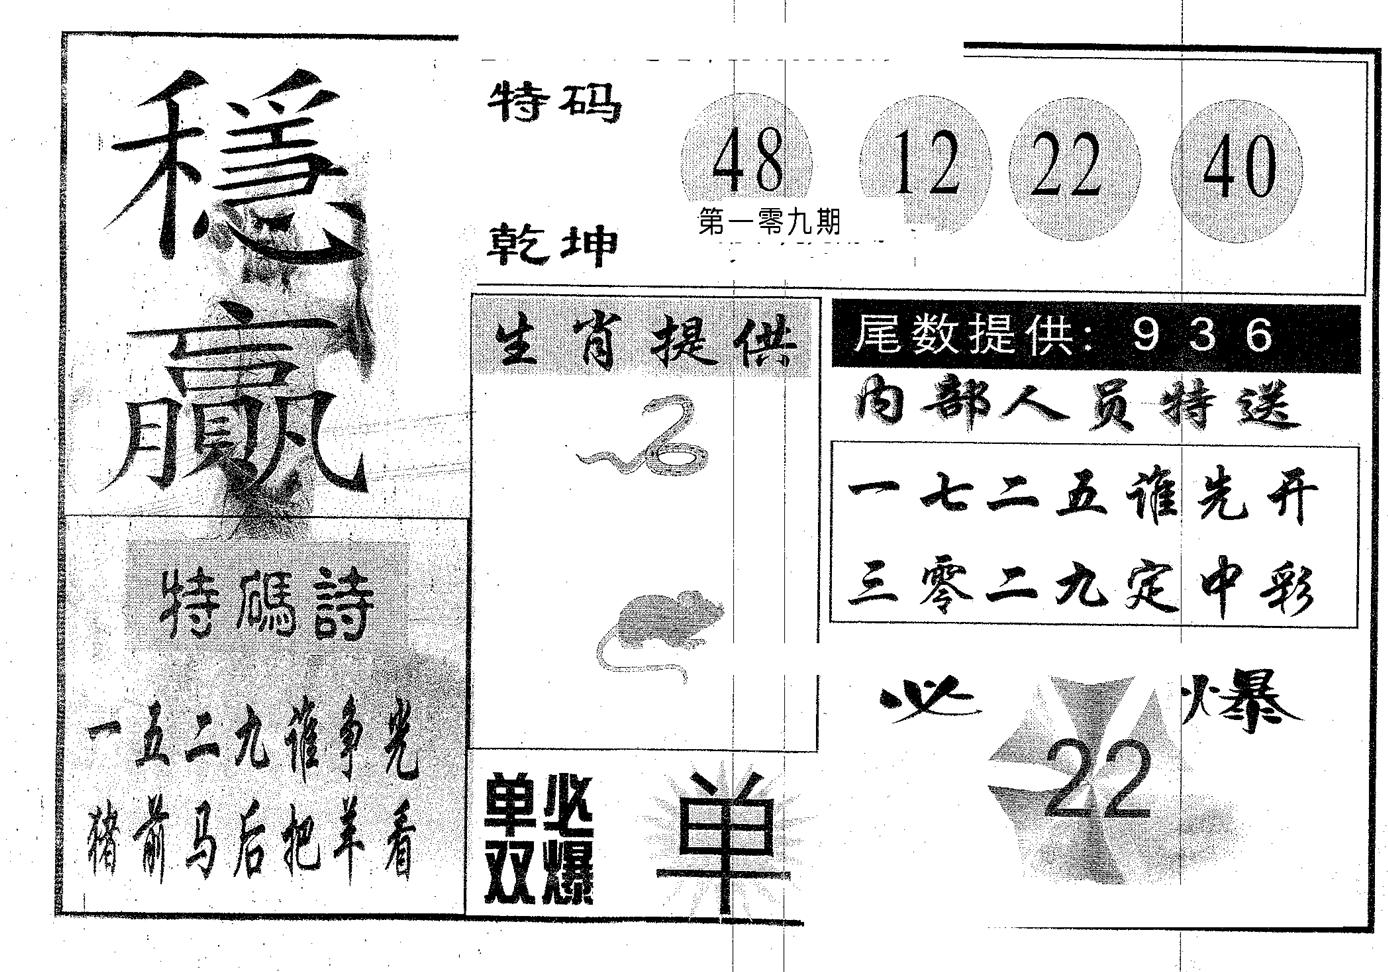 穩
贏
特码
48 12 22 40
第一零九期
乾坤
生肖提供
尾数提供: 9 3 6
内部人员特送
一七二五谁先开
三零二九定中彩
特碼詩
一五二九谁争光
猪前马后把羊看
必爆
22
单必
双爆
单